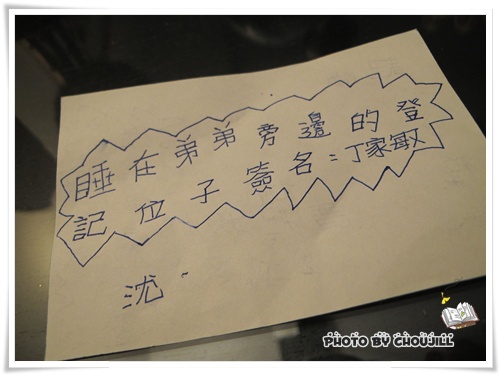 睡在弟弟旁邊的登
記位子簽名:丁家敏
沈
PHOTO BY CHOUJILL